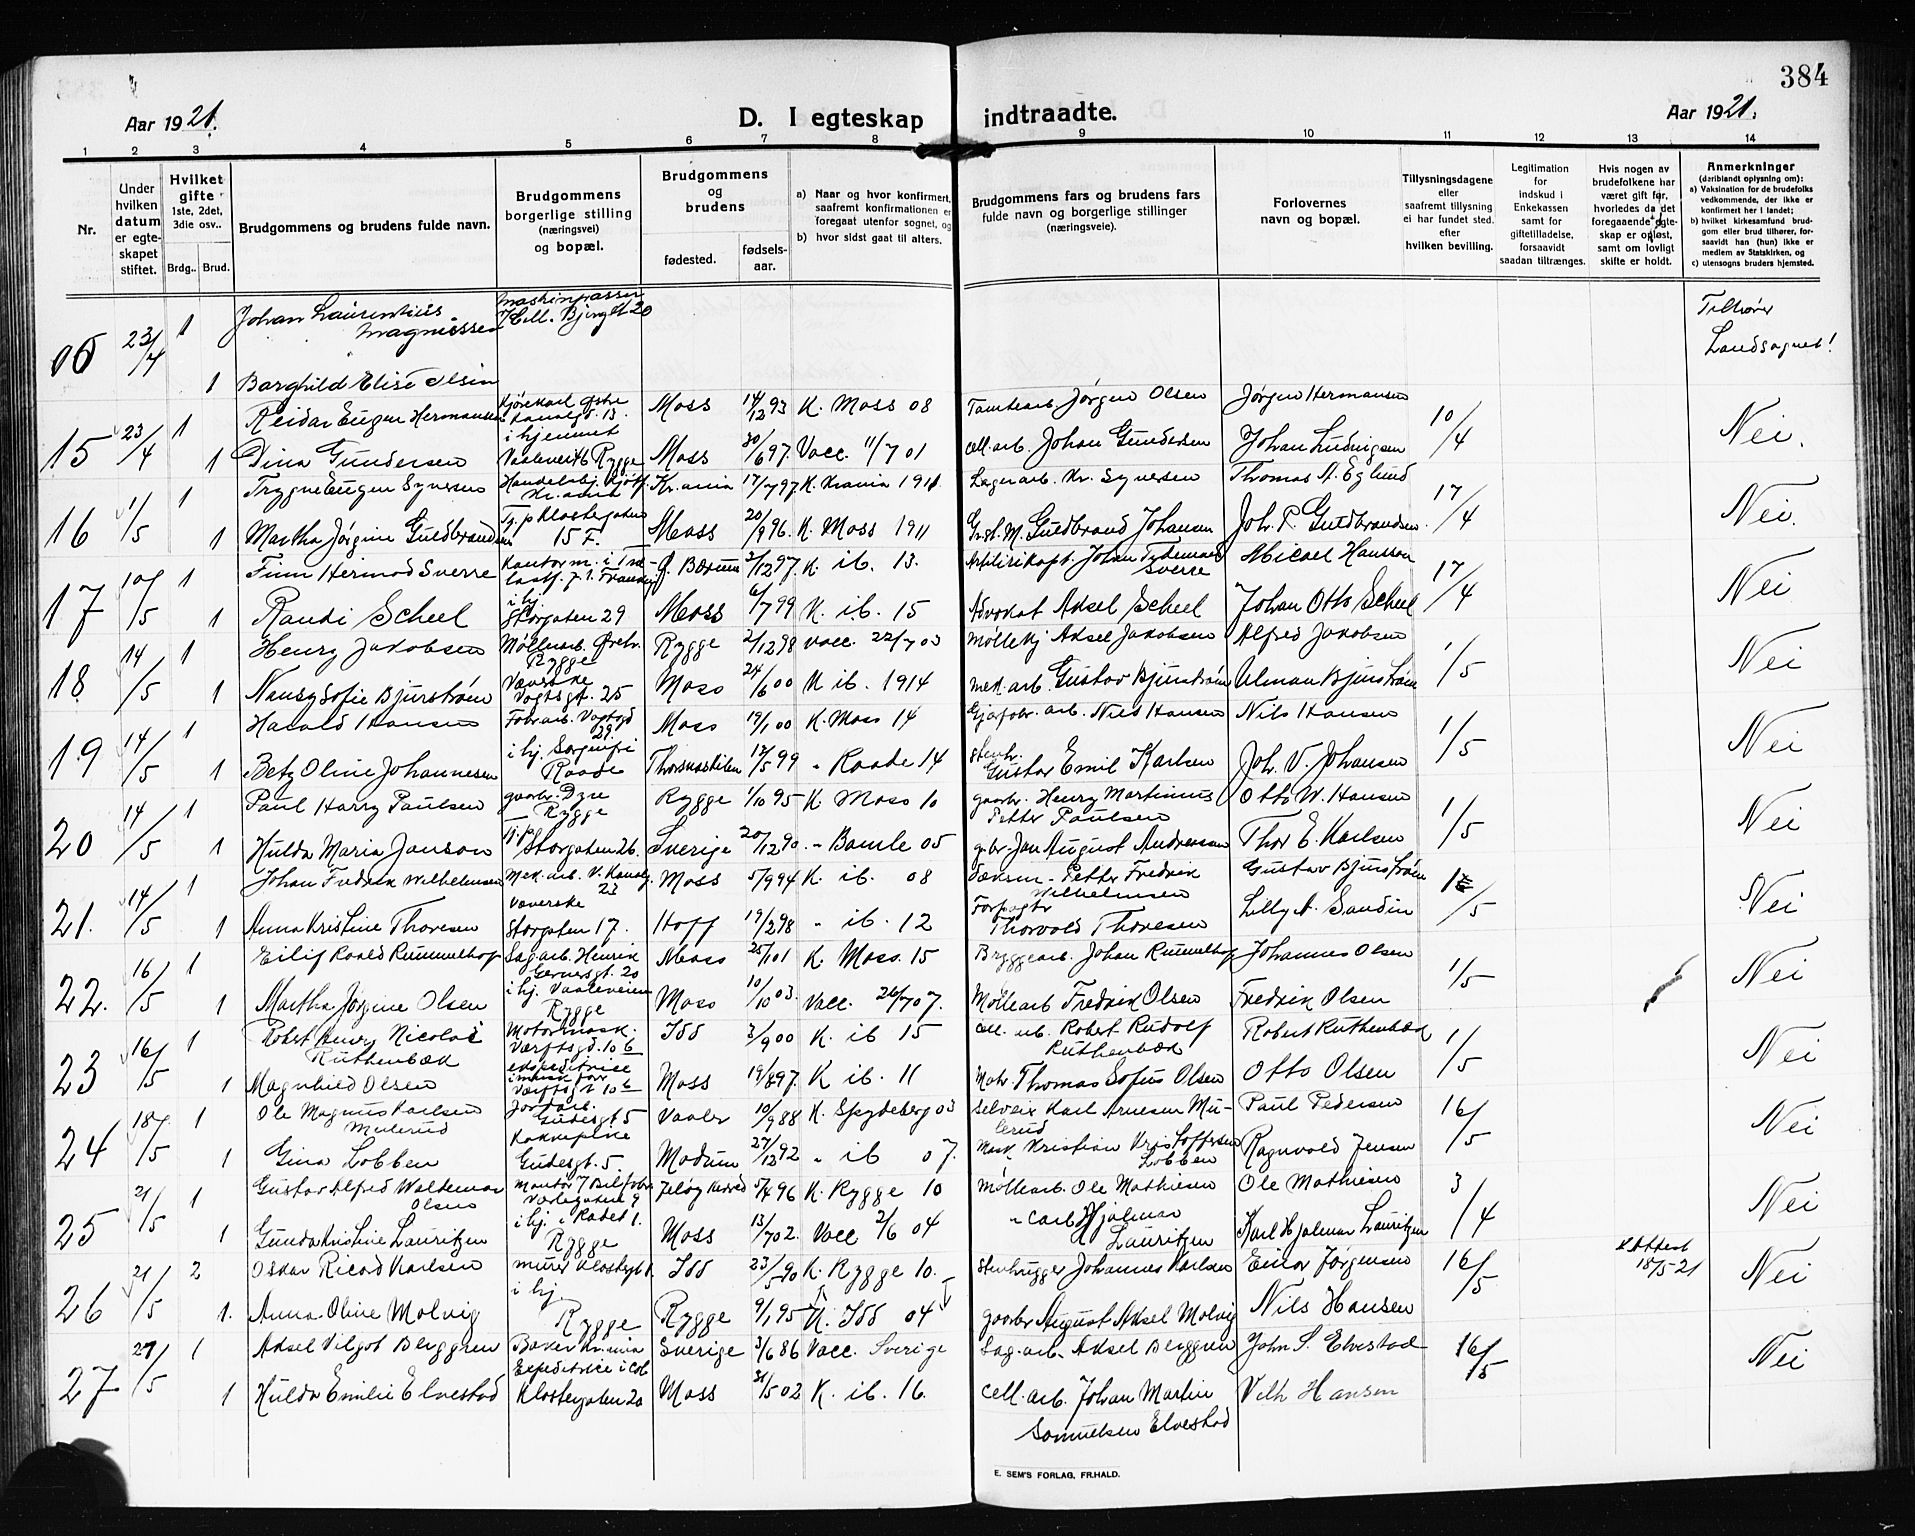 384
Aar 1921.
D. I egteskap indtraadte.
Aar 1921.
1 2 3 4 5 6 7 8 9 10 11 12 13 14
Nr.
Under hvilken datum er egteskapet stiftet.
Hvilket gifte 1ste, 2det, 3die osv..
Brdg.. Brud.
Brudgommens og brudens fulde navn.
Brudgommens borgerlige stilling (næringsvei) og bopæl.
Brudgommens og brudens
fødested.
fødsels-aar.
a) Naar og hvor konfirmert, saafremt konfirmationen er foregaat utenfor sognet, og
b) hvor sidst gaat til alters.
Brudgommens fars og brudens fars fulde navn og borgerlige stillinger (næringsveie).
Forlovernes navn og bopæl.
Tillysningsdagene eller saafremt tillysning ei har fundet sted. efter hvilken bevilling.
Legitimation for indskud i Enkekassen samt for giftetilladelse, forsaavidt saadan tiltrænges.
Hvis nogen av brudefolkene har været gift før, hvorledes da det foregaaende egteskap er opløst, samt om lovligt skifte er holdt.
Anmerkninger (deriblandt oplysning om):
a) Vaksination for de brudefolks vedkommende, der ikke er konfirmert her i landet;
b) hvilket kirkesamfund brudgom eller brud tilhører, forsaavidt han (hun) ikke er medlem av Statskirken, og
c) utensogns bruders hjemsted.
23/4 1 Johan Laurentius Magnussen Maskinpasser Tilhører Landsognet!
1 Borghild Elise Olsen
15 23/4 1 Reidar Eugen Hermansen Kjørekarl Østre Kanalgt. 13. Moss 14/12 93 K. Moss 08 Tomtearb Jørgen Olsen Jørgen Hermansen 10/4 Nei.
1 Dina Gundersen i hjemmet Rygge Moss 30/6 97. Vacc. 11/7 01 cell. arb. Johan Gundersen Johan Ludvigsen
16 1/5 1 Trygve Eugen Syversen Kr.ania 17/7 97. K. Krania 1911 Lagerarb. Kr. Syversen Thomas A. Eglund 17/4 Nei.
1 Martha Jørgine Guldbrandsen Tj. p Klostergaten 15 F. Moss 20/9 96. K. Moss 1911 Guldbrand Johansen Joh. P. Guldbrandsen
17 10/5 1 Finn Hermod Sverre Kontorm. i Ø. Bærum 3/12 97. K. ib. 13. Johan Tidemand Sverre Micael Hansson 17/4 Nei
1 Randi Scheel i hj. Storgaten 29 Moss 6/7 99 K. ib. 15 Advokat Aksel Scheel Johan Otto Scheel
18 14/5 1 Henry Jakobsen Møllearb. Rygge Rygge 2/12 98 vacc. 22/7 03 Møllekj Aksel Jakobsen Alfred Jakobsen 1/5 Nei
1 Nansy Sofie Bjurstrøm Væverske Vogtsgt. 25 Moss 24/6 00 K ib. 1914 mek. arb. Gustav Bjurstrøm Alman Bjurstrøm
19 14/5 1 Harald Hansen Fabr.arb. Vogtsgt 29. Moss 19/1 00 K. Moss 14 arb. Nils Hansen Nils Hansen 1/5 Nei
1 Betzy Oline Johannesen i hj. Sorgenfri Raade 12/5 99 " Raade 14 Stenh. Gustav Emil Karlsen Joh. V. Johansen
20 14/5 1 Paul Harry Paulsen gaarbr. Dyre Rygge Rygge 1/10 95 K. Moss 10 gaarbr. Henry Martinius Petter Paulsen Otto W. Hansen 1/5 Nei
1 Hulda Maria Janson Tj. p. Storgaten 26. Sverige 20/12 90 " Bamle 05 gbr. Jan August Andreassen Thor E. Karlsen
21. 14/5 1 Johan Fredrik Wilhelmsen Mek. arb. V. Kanalg. 23 Moss 5/9 94 K. ib. 08 Petter Fredrik Wilhelmsen Gustav Bjurstrøm Nei
1 Anna Kristine Thoresen Væverske Storgaten 17. Hoff 19/2 98 " ib. 12 Forpagtr Thorvald Thoresen Lilly A. Sandin
22. 16/5 1 Eilif Roald Rummelhof Sagarb. Henrik Gernersgt. 20 Moss 25/1 01 K. Moss. 15 Bryggearb. Johan Rummelhof Johannes Olsen 1/5 Nei
1 Martha Jørgine Olsen i hj. Vaaleveien Rygge Moss 10/10 03. Vacc. 26/7 07. Møllearb Fredrik Olsen Fredrik Olsen
23 16/5 1 Robert Henry Nicolai Ruthenbæk Motormask. Værftsgt. 10 b Idd 3/9 00 K. ib 15 Cell. arb. Robert Rudolf Ruthenbæk Robert Ruthenbæk 1/5 Nei
1 Magnhild Olsen ekspeditrice Værftsgt 10 b Moss 19/8 97. K ib. 11 Thomas Sofus Olsen Otto Olsen
24 18/5 1 Ole Magnus Karlsen Mulerud Jordarb. Gudesgt 5 Vaaler 10/9 88 K. Spydeberg 03 Selveier Karl Arnesen Mulerud Paul Pedersen 16/5 Nei
1 Gina Lobben Kokkepike Gudesgt. 5. Modum 27/12 92 " ib 07. Mask Kristian Kristoffersen Lobben Ragnvald Jensen
25 21/5 1 Gustav Alfred Waldemar Olsen Montør Bilfabr. 5/4 96 K. Rygge 10 Møllearb. Ole Mathiesen Ole Mathiesen 3/4 Nei
1 Gunda Kristine Lauritzen i hj. i Rabet 1. Rygge Moss 13/7 02. Vacc 2/6 04 " Carl Hjalmar Lauritzen Karl Hjalmar Lauritzen
26 21/5 2 Oskar Ricard Karlsen murer Klostergt 1. Idd 23/5 90 K. Rygge 10. Stenhugger Johannes Karlsen Einar Jørgensen 16/5 Attest 18/5-21 Nei
1. Anna Oline Molvig i hj. Rygge Rygge 9/1 95 K. Idd 04 gaarbr August Aksel Molvig Nils Hansen
27 21/5 1 Aksel Vilgot Berggren Baker Kr.ania Sverige 3/6 86 Vacc. Sverige Sag. arb. Aksel Berggren John S. Elvestad 16/5 Nei
1 Hulda Emilie Elvestad Expeditrice i Klostergaten 20 Moss 31/5 02 K. ib. 16. Cell. arb. Johan Martin Samuelsen Elvestad Vilh Hansen
E. SEM'S FORLAG, FR.HALD.